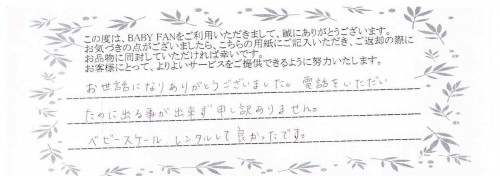 この度は、BABY FANをご利用いただきまして、誠にありがとうございます。
お気づきの点がございましたら、こちらの用紙にご記入いただき、ご返却の際に
お品物に同封していただければ幸いです。
お客様にとって、よりよいサービスをご提供できるように努力いたします。
お世話になりありがとうございました。電話をいただい
たのに出る事が出来ず申し訳ありません。
ベビースケール レンタルして良かったです。